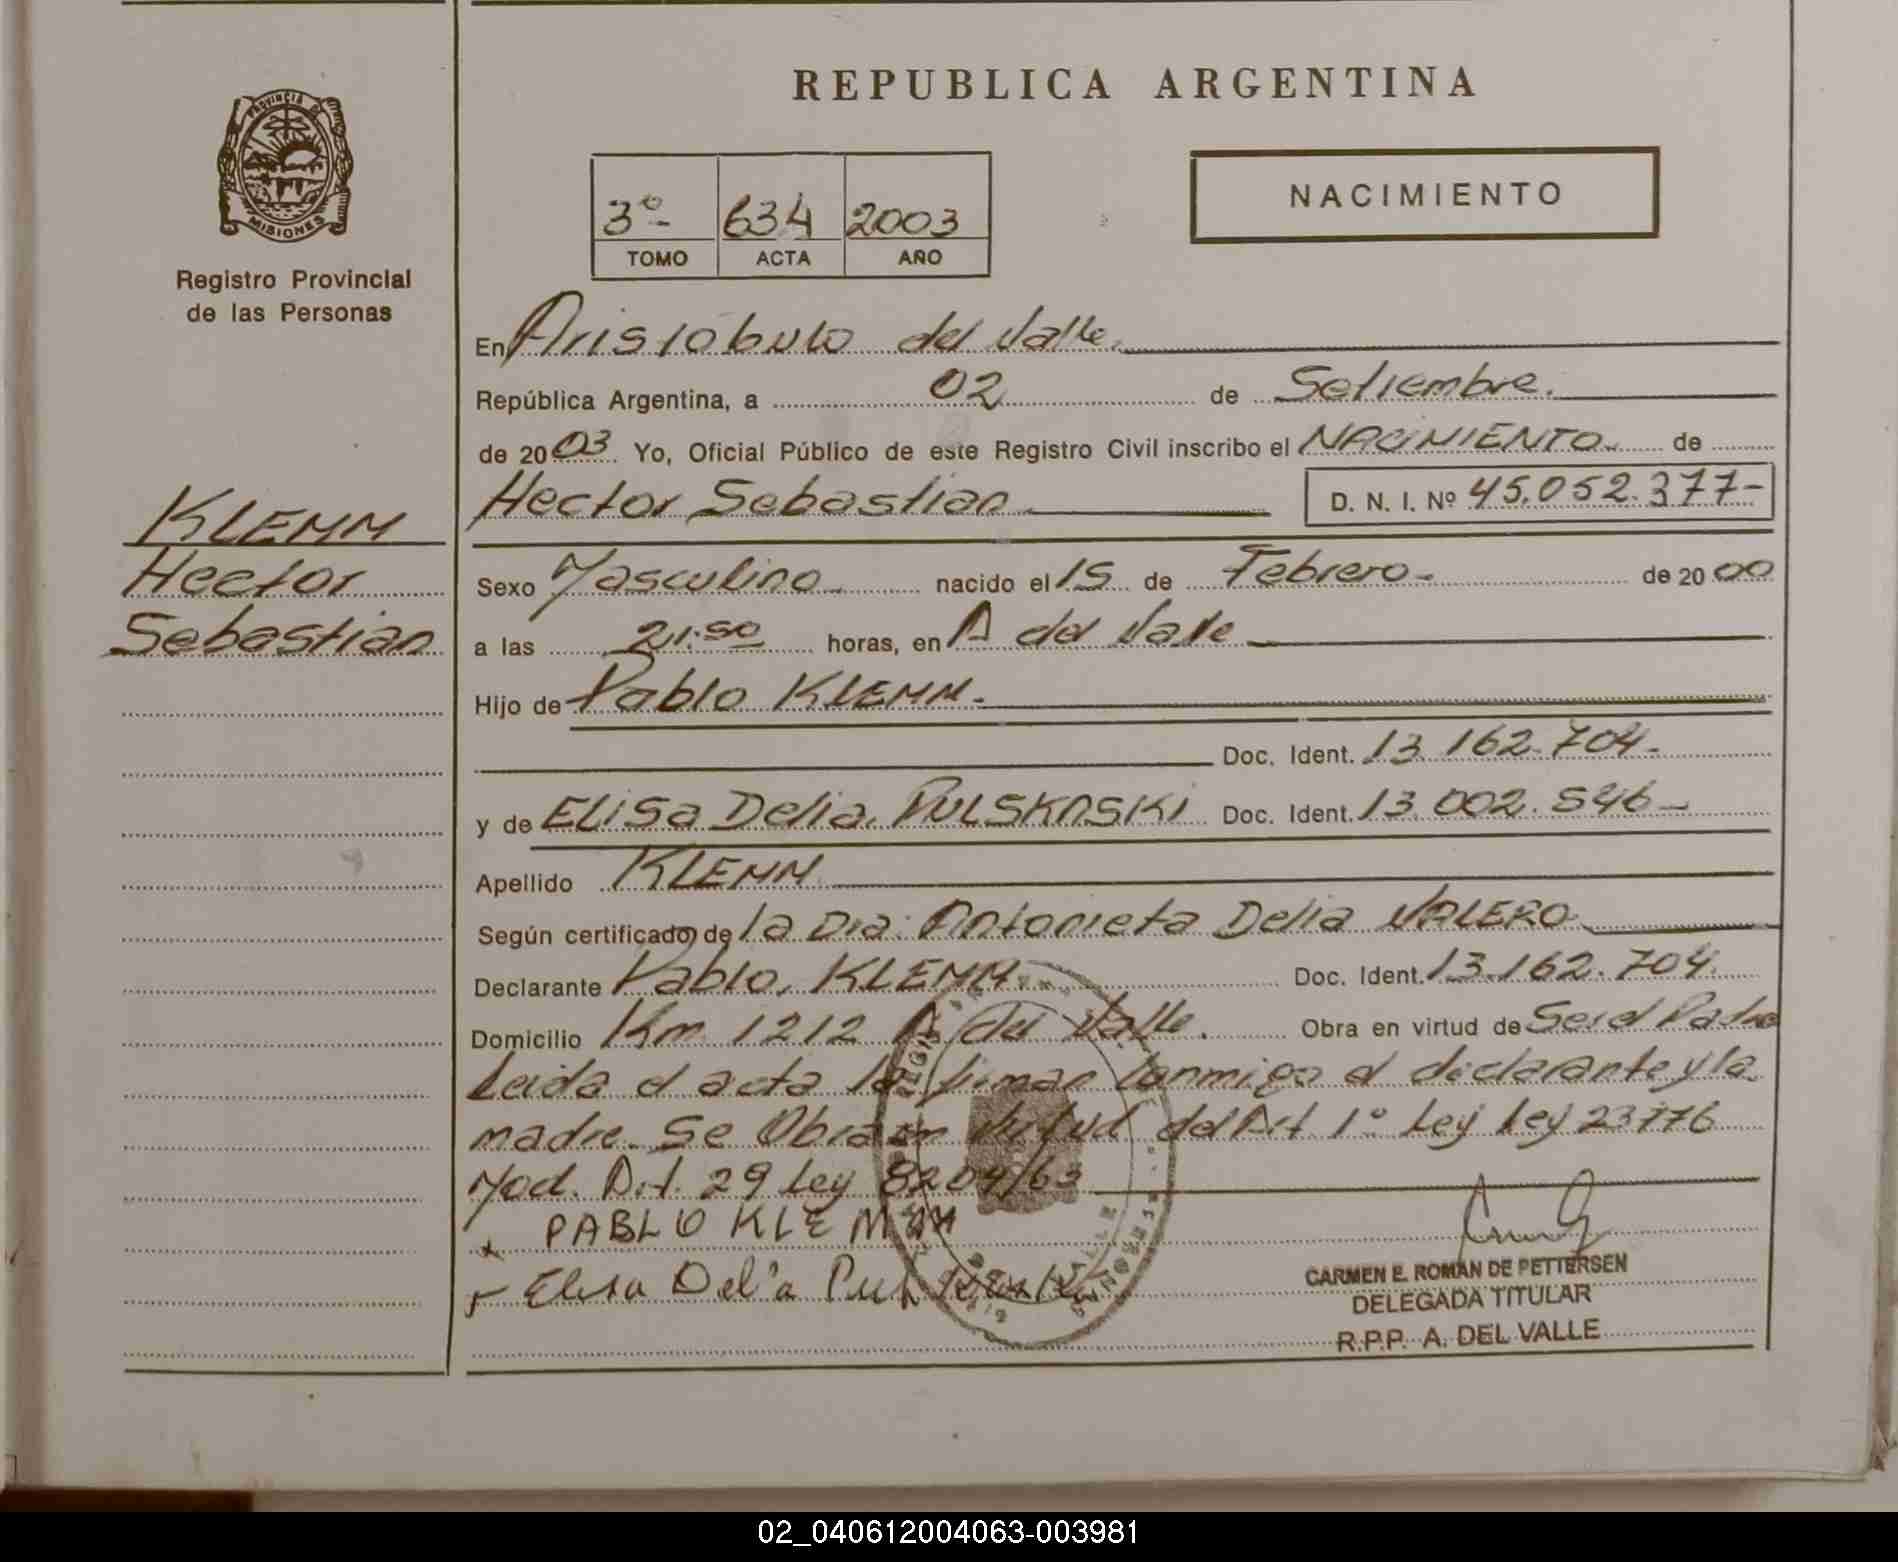 REPUBLICA ARGENTINA
PROVINCIA
MISIONES
Registro Provincial
de las Personas
3º 634 2003
TOMO ACTA AÑO
NACIMIENTO
KLEMM
Hector
Sebastian
En Aristobulo del Valle.
República Argentina, a 02 de Setiembre.
de 2003 Yo, Oficial Público de este Registro Civil inscribo el NACIMIENTO de
Hector Sebastian D. N. I. Nº 45.052.377-
Sexo Masculino nacido el 15 de Febrero. de 2000
a las 21:50 horas, en A del Valle
Hijo de Pablo KLEMM.
Doc. Ident. 13.162.704.
y de ELISA Delia. PULSKASKI Doc. Ident. 13.002.546
Apellido KLEMM
Según certificado de la Dra. Antonieta Delia VALERO
Declarante Pablo. KLEMM Doc. Ident. 13.162.704.
Domicilio Km 1212 A del Valle. Obra en virtud de Ser el Padre
Leida el acta la firman conmigo el declarante y la
madre. Se Obra en virtud del Art 1º Ley Ley 23776
Mod. Art. 29 Ley 8204/63
PABLO KLEMM
Elisa Delia
CARMEN E. ROMAN DE PETTERSEN
DELEGADA TITULAR
R.P.P. A. DEL VALLE
02_040612004063-003981